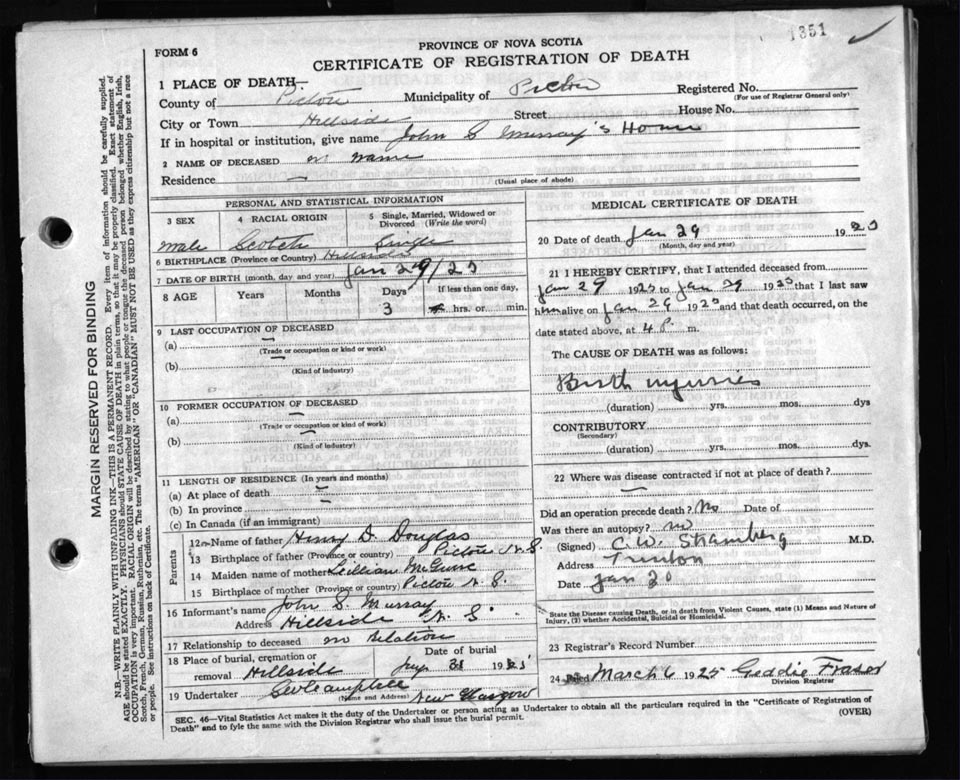 1351
PROVINCE OF NOVA SCOTIA
FORM 6
CERTIFICATE OF REGISTRATION OF DEATH
1 PLACE OF DEATH—
County of Pictou Municipality of Pictou Registered No.
(For use of Registrar General only)
City or Town Hillside Street House No.
If in hospital or institution, give name John S. Murray's Home
2 NAME OF DECEASED no name
Residence —
(Usual place of abode)
PERSONAL AND STATISTICAL INFORMATION
3 SEX 4 RACIAL ORIGIN 5 Single, Married, Widowed or Divorced (Write the word)
Male Scotch Single
6 BIRTHPLACE (Province or Country) Hillside
7 DATE OF BIRTH (month, day and year) Jan 29/25
8 AGE Years Months Days If less than one day,
3 hrs. or min.
9 LAST OCCUPATION OF DECEASED
(a) —
(Trade or occupation or kind of work)
(b)
(Kind of industry)
10 FORMER OCCUPATION OF DECEASED
(a) —
(Trade or occupation or kind of work)
(b) —
(Kind of industry)
11 LENGTH OF RESIDENCE (In years and months)
(a) At place of death —
(b) In province —
(c) In Canada (if an immigrant)
Parents
12 Name of father Henry D. Douglas
13 Birthplace of father (Province or country) Pictou N.S.
14 Maiden name of mother Lillian
15 Birthplace of mother (Province or country) Pictou N.S.
16 Informant's name John S. Murray
Address Hillside N.S.
17 Relationship to deceased no relation
18 Place of burial, cremation or removal Hillside Date of burial 31 1925
19 Undertaker
(Name and Address) New Glasgow
MEDICAL CERTIFICATE OF DEATH
20 Date of death Jan 29 1925
(Month, day and year)
21 I HEREBY CERTIFY, that I attended deceased from
Jan 29 1925 to Jan 29 1925 that I last saw
him alive on Jan 29 1925 and that death occurred, on the
date stated above, at 4 P. m.
The CAUSE OF DEATH was as follows:
Birth injuries
(duration) yrs. mos. dys
CONTRIBUTORY
(Secondary)
(duration) yrs. mos. dys.
22 Where was disease contracted if not at place of death?
—
Did an operation precede death? No Date of
Was there an autopsy? no
(Signed) C. W. Stramberg M.D.
Address Trenton
Date Jan 30
State the Disease causing Death, or in death from Violent Causes, state (1) Means and Nature of
Injury, (2) whether Accidental, Suicidal or Homicidal.
23 Registrar's Record Number
24 Filed March 6 1925 Geddie Fraser
Division Registrar
SEC. 46—Vital Statistics Act makes it the duty of the Undertaker or person acting as Undertaker to obtain all the particulars required in the "Certificate of Registration of
Death" and to fyle the same with the Division Registrar who shall issue the burial permit. (OVER)
MARGIN RESERVED FOR BINDING
N.B.—WRITE PLAINLY WITH UNFADING INK—THIS IS A PERMANENT RECORD. Every item of information should be carefully supplied.
AGE should be stated EXACTLY. PHYSICIANS should STATE CAUSE OF DEATH in plain terms, so that it may be properly classified. Exact statement of
OCCUPATION is very important. RACIAL ORIGIN will be described by stating to what people or tongue the deceased person belonged whether English, Irish,
Scotch, French, German, Russian, Ruthenian, etc. The terms "AMERICAN" OR "CANADIAN" MUST NOT BE USED as they express citizenship but not a race
or people. See instructions on back of Certificate.